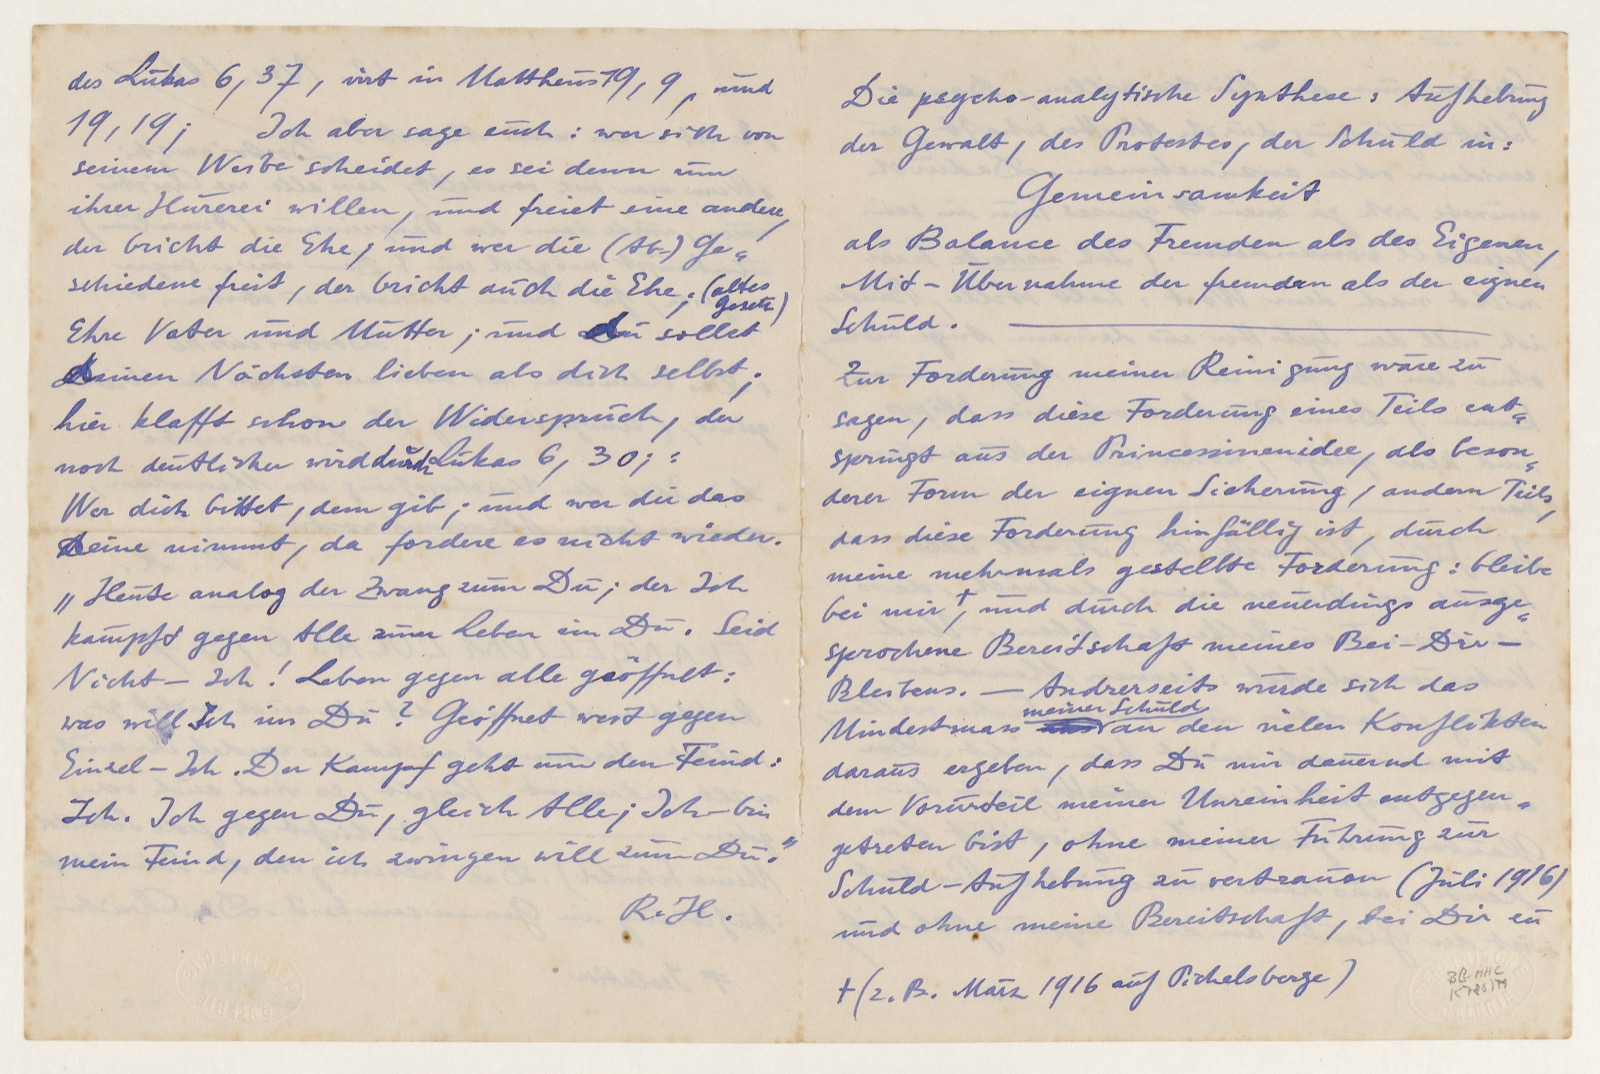 des Lukas 6, 37, irrt in Mattheus 19, 9, und
19, 19; Ich aber sage euch: wer sich von
seinem Weibe scheidet, es sei denn um
ihrer Hurerei willen, und freiet eine andere,
der bricht die Ehe; und wer die (Ab-) Ge=
schiedene freit, der bricht auch die Ehe; (altes
Gesetz)
Ehre Vater und Mutter; und du sollst
Deinen Nächsten lieben als dich selbst;
hier klafft schon der Widerspruch, der
noch deutlicher wird durch Lukas 6, 30; :
Wer dich bittet, dem gib; und wer dir das
Deine nimmt, da fordere es nicht wieder.
„Heute analog der Zwang zum Du; der Ich
kämpft gegen Alle zum Leben im Du. Seid
Nicht – Ich! Leben gegen alle geöffnet:
was will Ich im Du? Geöffnet weit gegen
Einzel – Ich. Der Kampf geht um den Feind:
Ich. Ich gegen Du, gleich Alle; Ich – bin
mein Feind, den ich zwingen will zum Du."
R. H.
Die psycho-analytische Synthese: Aufhebung
der Gewalt, des Protestes, der Schuld in:
Gemeinsamkeit
als Balance des Fremden als des Eigenen,
Mit – Übernahme der fremden als der eignen
Schuld.
Zur Forderung meiner Reinigung wäre zu
sagen, dass diese Forderung eines Teils ent=
springt aus der Princessinnenidee, als beson=
derer Form der eignen Sicherung, andern Teils,
dass diese Forderung hinfällig ist, durch
meine mehrmals gestellte Forderung: bleibe
bei mir †, und durch die neuerdings ausge=
sprochene Bereitschaft meines Bei – Dir –
Bleibens. — Andrerseits würde sich das
Mindestmass meiner Schuld an den vielen Konflikten
daraus ergeben, dass Du mir dauernd mit
dem Vorurteil meiner Unreinheit entgegen=
getreten bist, ohne meiner Führung zur
Schuld – Aufhebung zu vertrauen (Juli 1916)
und ohne meine Bereitschaft, bei Dir zu
† (z. B. März 1916 auf Pichelsberge)
BG-HHC
K 785/79